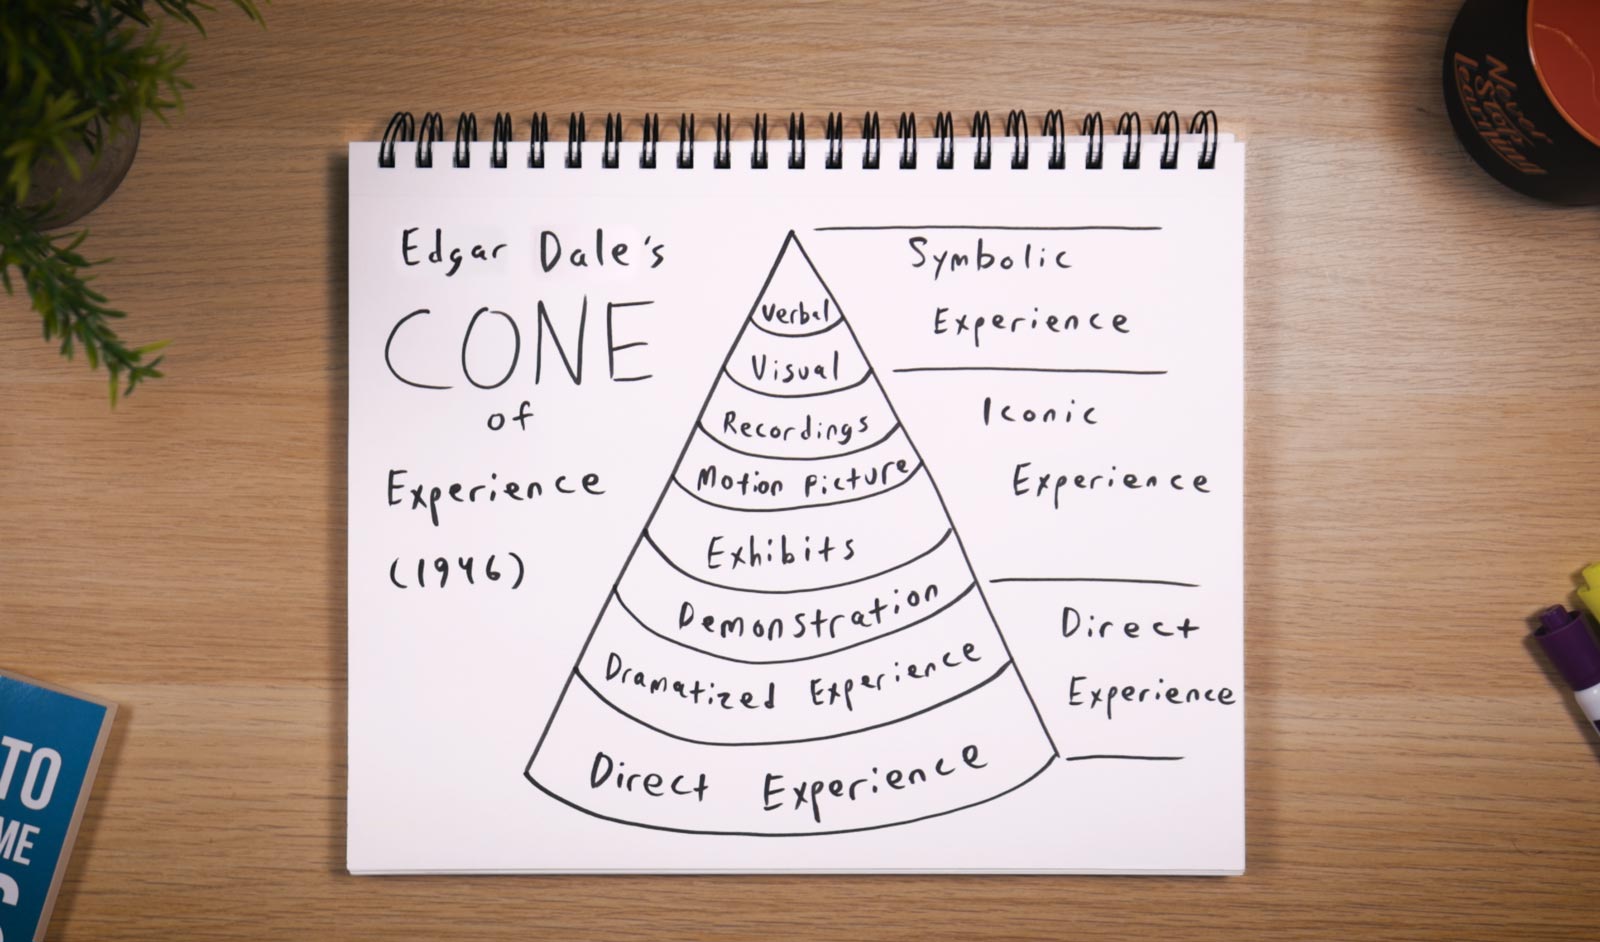 Edgar Dale's
CONE
of
Experience
(1946)
Verbal
Visual
Recordings
Motion Picture
Exhibits
Demonstration
Dramatized Experience
Direct Experience
Symbolic
Experience
Iconic
Experience
Direct
Experience
Never
Stop
learning
TO
ME